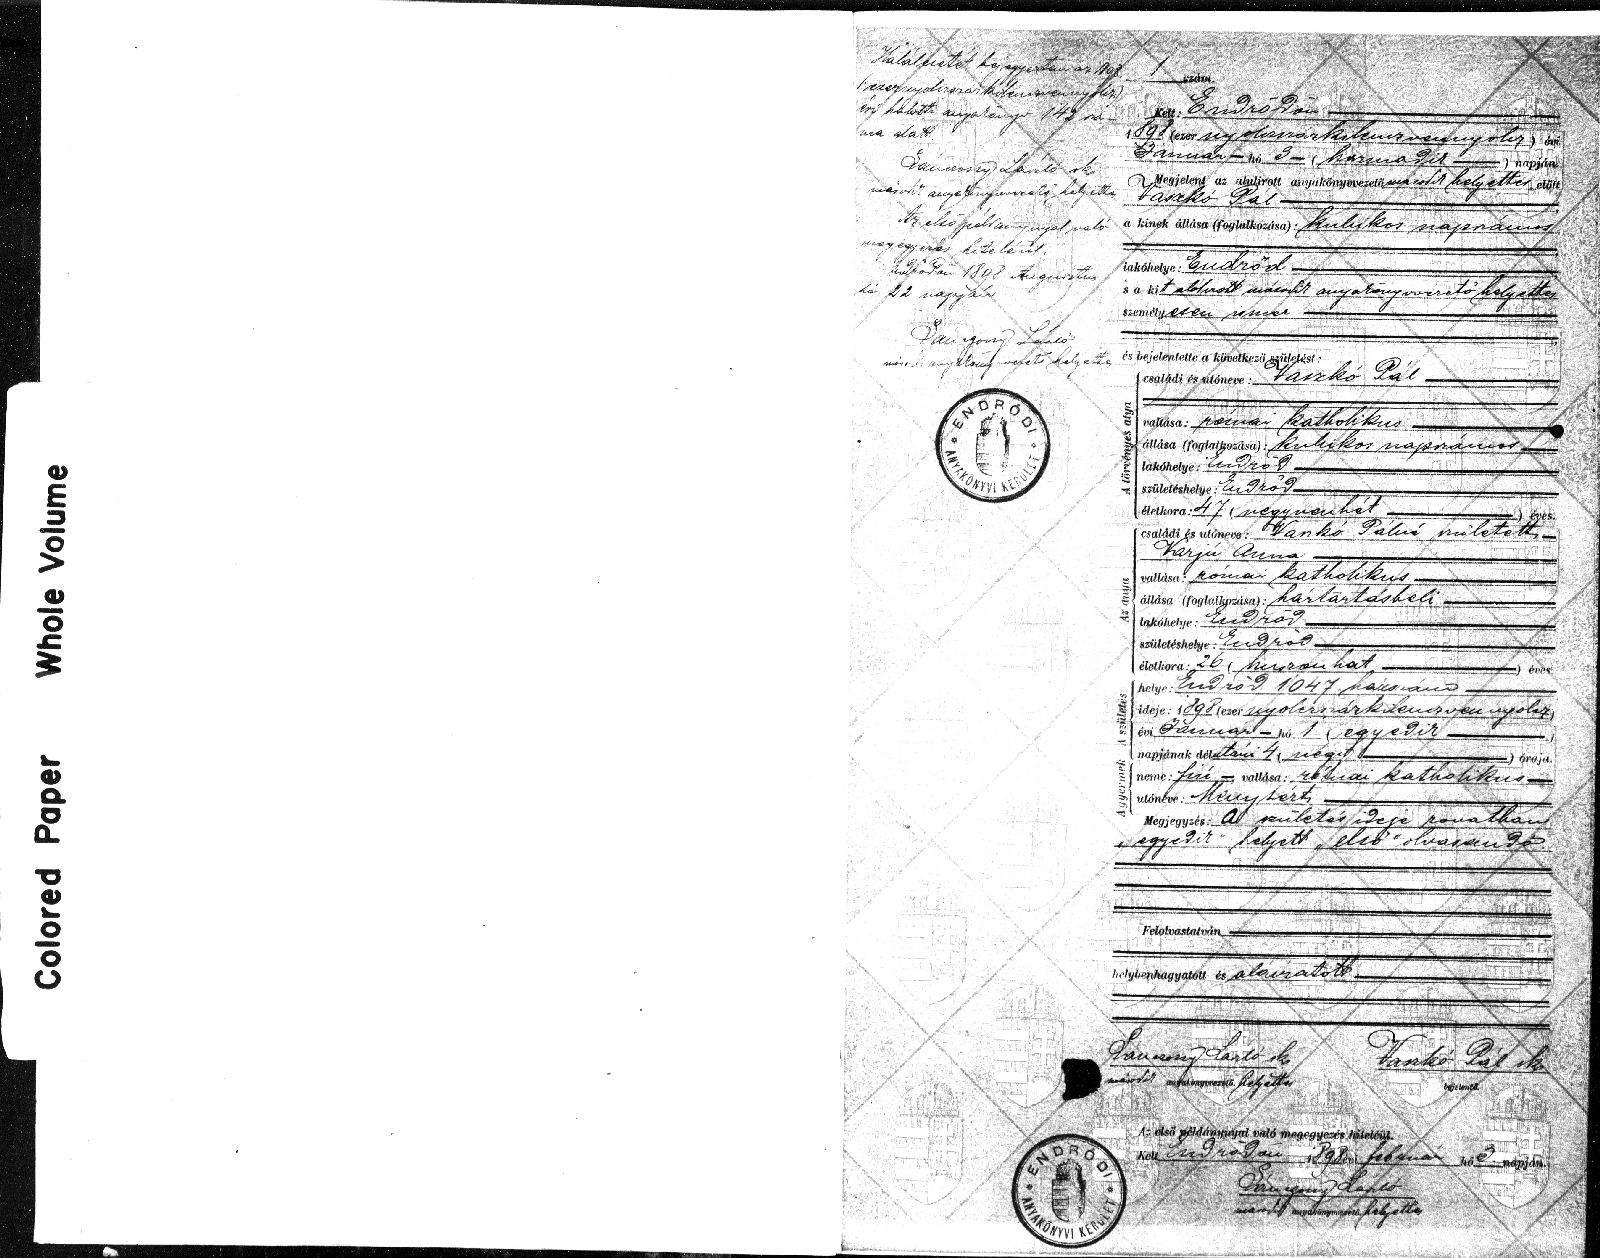 Colored Paper Whole Volume
Halálesetét bejegyeztem az 1898
(ezernyolczszázkilenczvennyolcz)
évi halotti anyakönyv 142 szá-
ma alatt
László sk
másod anyakönyvvezető helyettes
Az első példánynyal való
megegyezés hiteléül.
Endrődön 1898 Augusztus
hó 22 napján
László
másod anyakönyvvezető helyettes
ENDRŐDI
ANYAKÖNYVI KERÜLET
1 szám.
Kelt: Endrődön
1898 (ezer nyolczszázkilenczvennyolcz) évi
Január hó 3 (harmadik) napján
Megjelent az alulirott anyakönyvvezető másod helyettes előtt
Vaszkó Pál
a kinek állása (foglalkozása): kubikos napszámos
lakóhelye: Endrőd
s a kit alulirott másod anyakönyvvezető helyettes
személyesen ismer
és bejelentette a következő születést:
A törvényes atya
családi és utóneve: Vaszkó Pál
vallása: római katholikus
állása (foglalkozása): kubikos napszámos
lakóhelye: Endrőd
születéshelye: Endrőd
életkora: 47 (negyvenhét) éves.
Az anya
családi és utóneve: Vaszkó Pálné született
Varjú Anna
vallása: római katholikus
állása (foglalkozása): háztartásbeli
lakóhelye: Endrőd
születéshelye: Endrőd
életkora: 26 (huszonhat) éves
A születés
helye: Endrőd 1047 házszám
ideje: 1898 (ezer nyolczszázkilenczvennyolcz)
évi Január hó 1 (egyedik)
napjának délutáni 4 (négy) órája.
A gyermek
neme: fiú vallása: római katholikus
utóneve: Menyhért
Megjegyzés: A születés ideje rovatban
"egyedik" helyett "első" olvasandó
Felolvastatván
helybenhagyatott és aláiratott
László sk Vaszkó Pál sk
másod anyakönyvvezető. helyettes bejelentő.
Az első példánynyal való megegyezés hiteléül.
Kelt Endrődön 1898 évi február hó 3 napján.
László
másod anyakönyvvezető. helyettes
ENDRŐDI
ANYAKÖNYVI KERÜLET